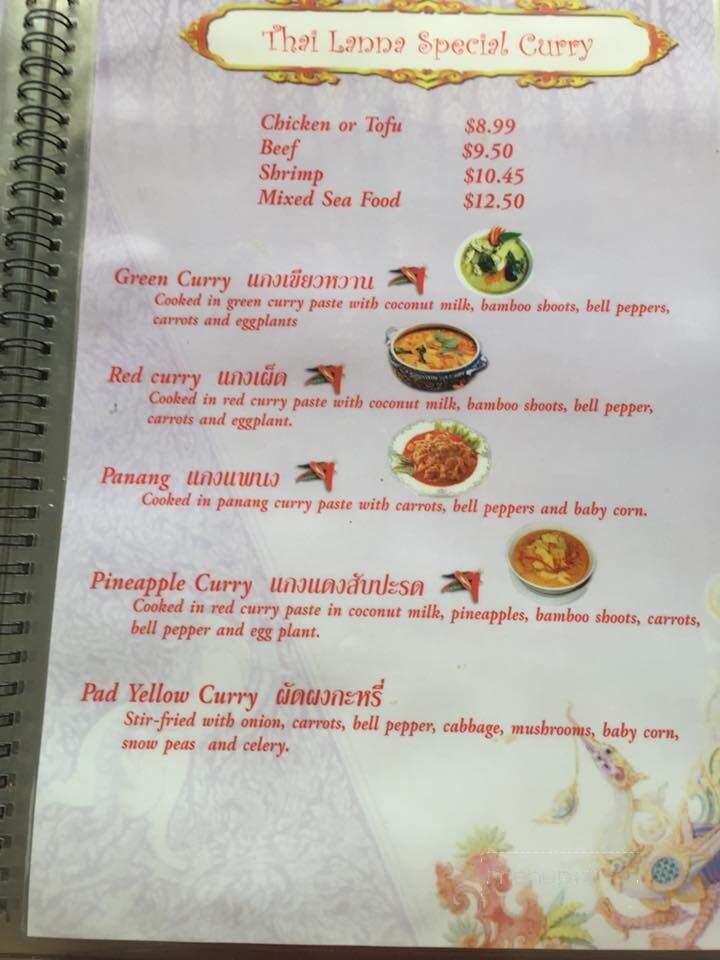 Thai Lanna Special Curry
Chicken or Tofu $8.99
Beef $9.50
Shrimp $10.45
Mixed Sea Food $12.50
Green Curry แกงเขียวหวาน
Cooked in green curry paste with coconut milk, bamboo shoots, bell peppers,
carrots and eggplants
Red curry แกงเผ็ด
Cooked in red curry paste with coconut milk, bamboo shoots, bell pepper,
carrots and eggplant.
Panang แกงแพนง
Cooked in panang curry paste with carrots, bell peppers and baby corn.
Pineapple Curry แกงแดงสับปะรด
Cooked in red curry paste in coconut milk, pineapples, bamboo shoots, carrots,
bell pepper and egg plant.
Pad Yellow Curry ผัดผงกะหรี่
Stir-fried with onion, carrots, bell pepper, cabbage, mushrooms, baby corn,
snow peas and celery.